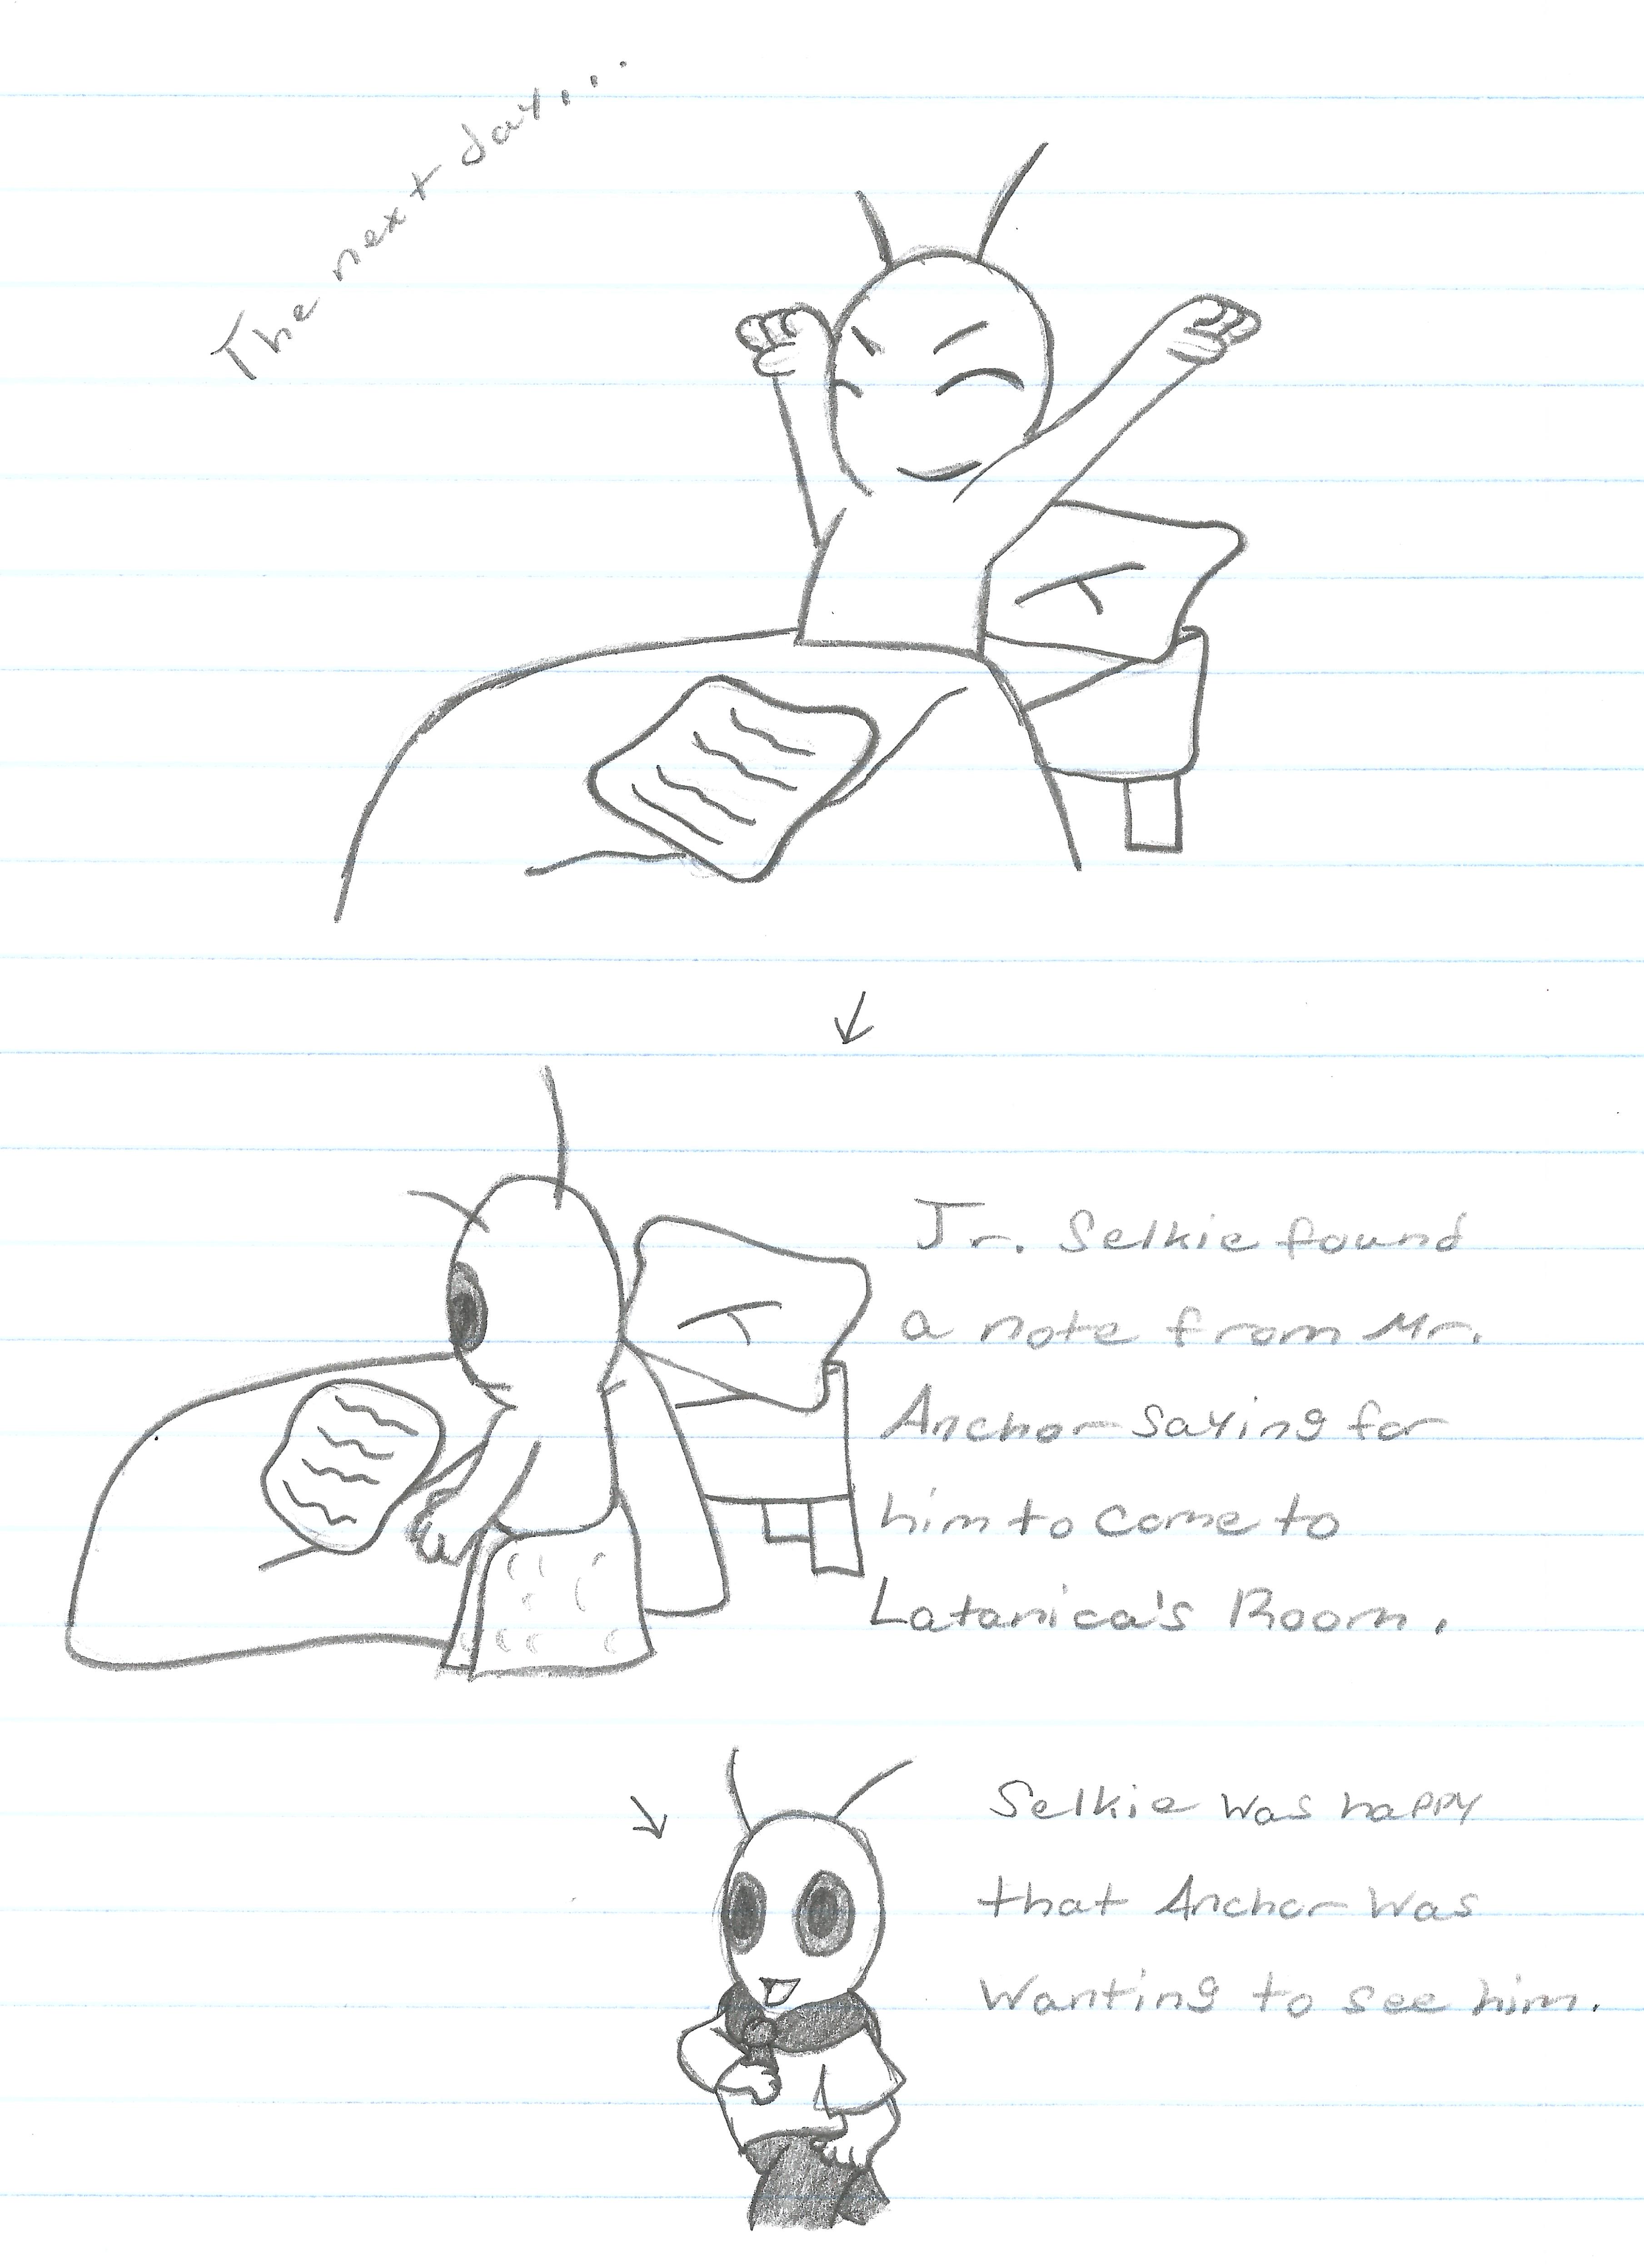 The next day...
Jr. Selkie found
a note from Mr.
Anchor saying for
him to come to
Latanica's Room.
Selkie was happy
that Anchor was
wanting to see him.